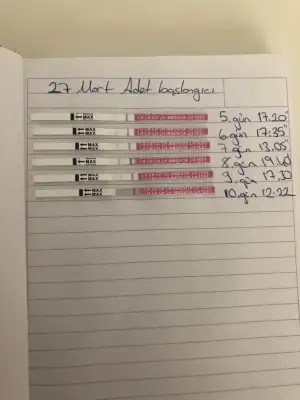 27 Mart Adet başlangıcı
MAX 5.gün 17.20
MAX 6.gün 17:35
MAX 7.gün 13.05
MAX 8.gün 19.40
MAX 9.gün 17.30
MAX 10.gün 12:22